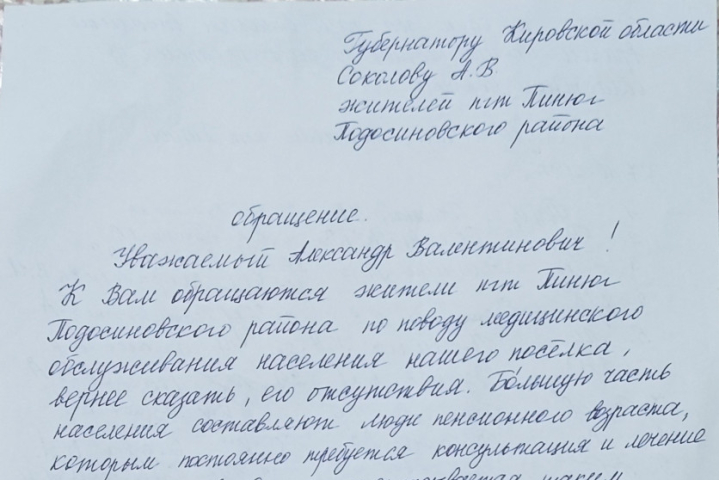 Губернатору Кировской области
Соколову А.В.
жителей пгт Пинюг
Подосиновского района
обращение.
Уважаемый Александр Валентинович!
К Вам обращаются жители пгт Пинюг
Подосиновского района по поводу медицинского
обслуживания населения нашего посёлка,
вернее сказать, его отсутствия. Бо́льшую часть
населения составляют люди пенсионного возраста,
которым постоянно требуется консультация и лечение
таким